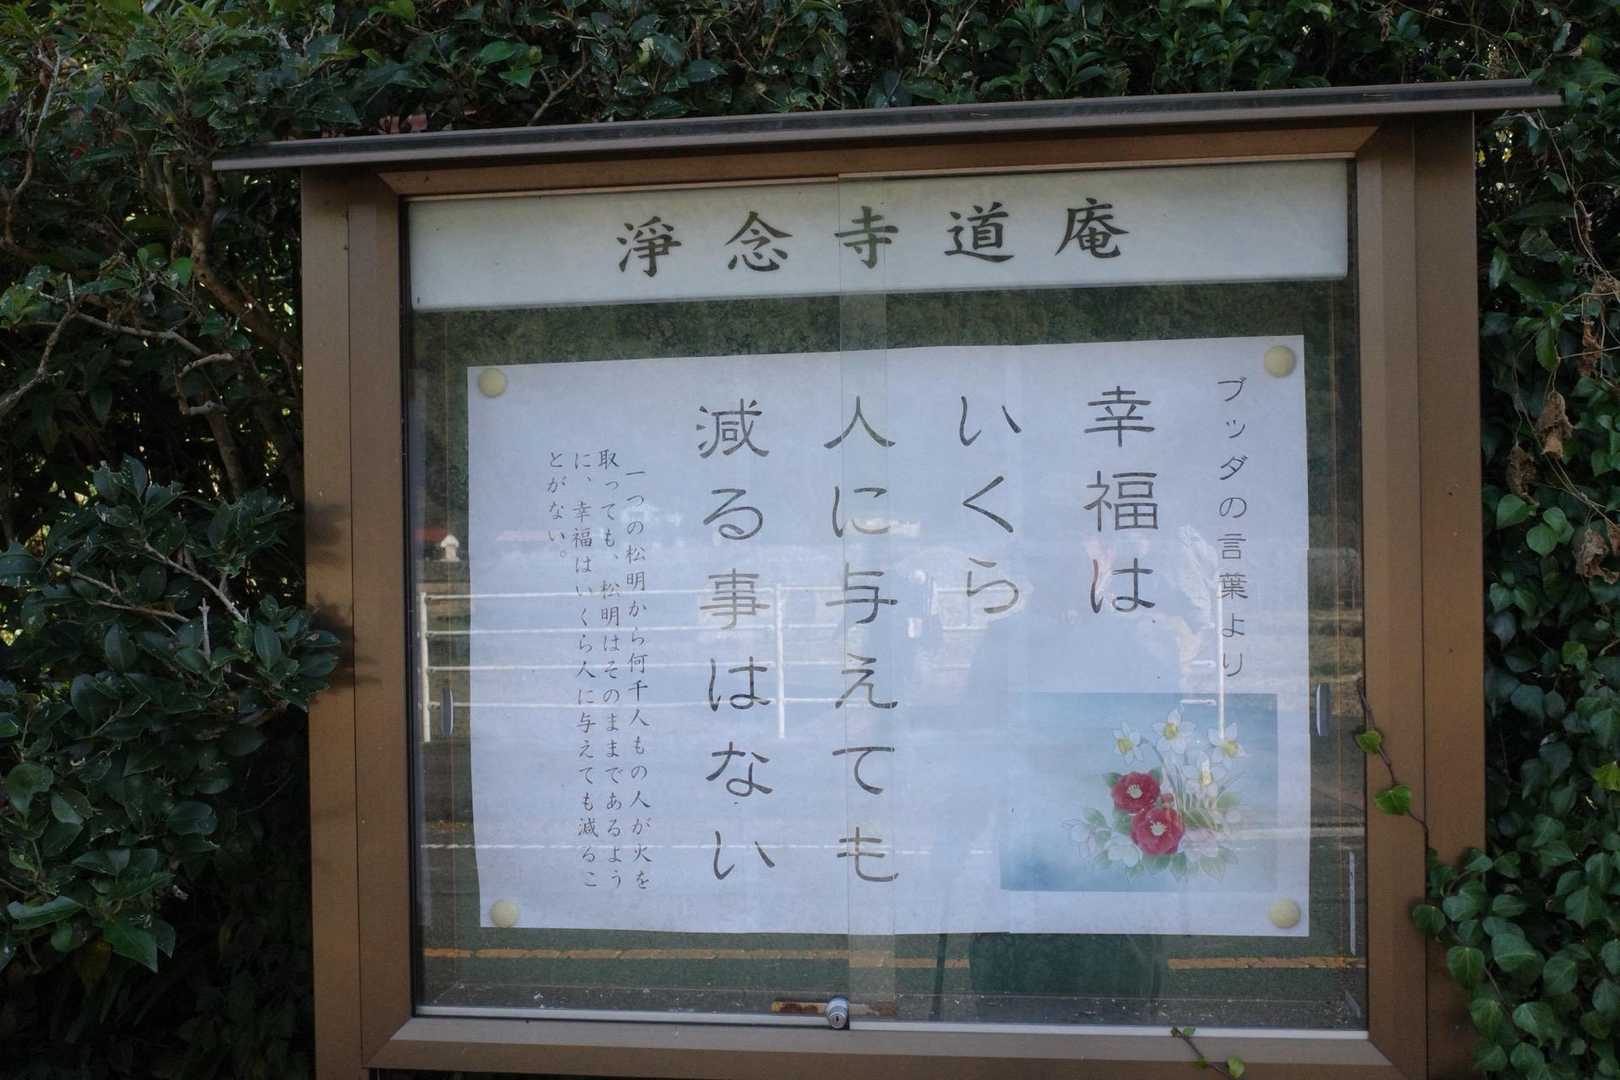 淨念寺道庵
ブッダの言葉より
幸福は
いくら
人に与えても
減る事はない
一つの松明から何千人もの人が火を
取っても、松明はそのままであるよう
に、幸福はいくら人に与えても減るこ
とがない。